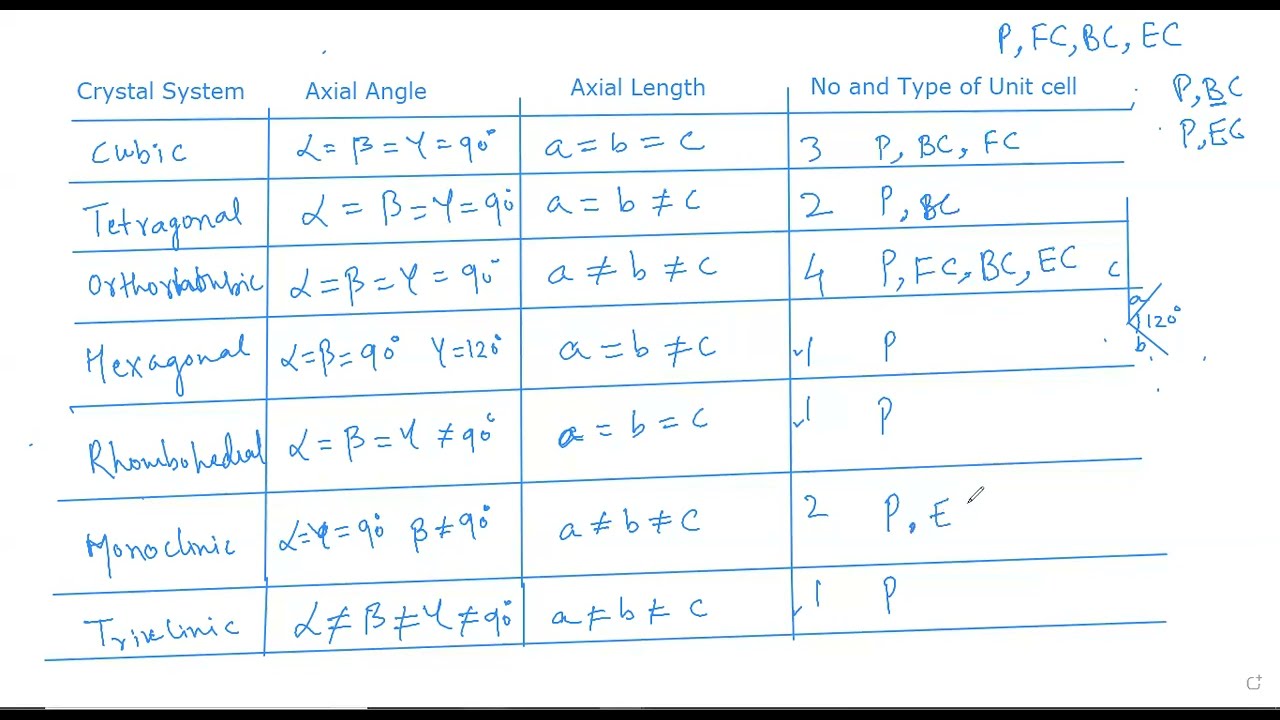 P, FC, BC, EC
Crystal System Axial Angle Axial Length No and Type of Unit cell P, BC
Cubic α = β = γ = 90° a = b = c 3 P, BC, FC P, EC
Tetragonal α = β = γ = 90° a = b ≠ c 2 P, BC
Orthorhombic α = β = γ = 90° a ≠ b ≠ c 4 P, FC, BC, EC c
a
120°
b
Hexagonal α = β = 90° γ = 120° a = b ≠ c 1 P
Rhombohedral α = β = γ ≠ 90° a = b = c 1 P
Monoclinic α = γ = 90° β ≠ 90° a ≠ b ≠ c 2 P, E
Triclinic α ≠ β ≠ γ ≠ 90° a ≠ b ≠ c 1 P